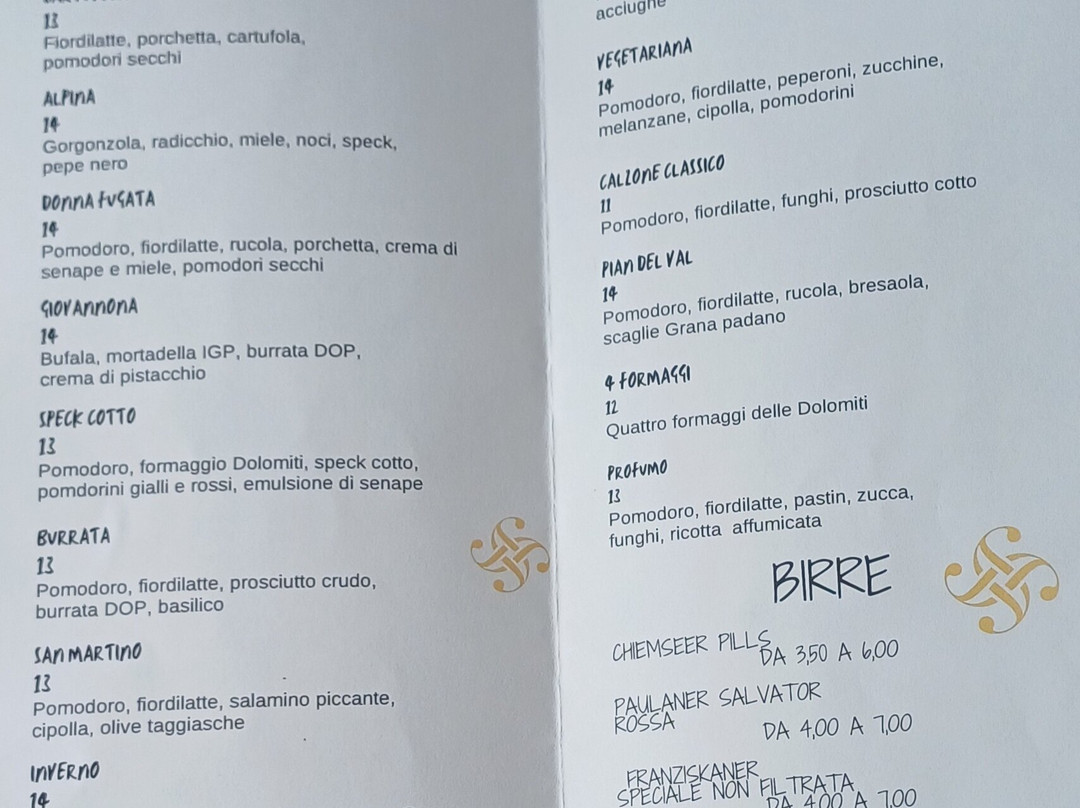 13
Fiordilatte, porchetta, cartufola,
pomodori secchi
ALPINA
14
Gorgonzola, radicchio, miele, noci, speck,
pepe nero
DONNA FUGATA
14
Pomodoro, fiordilatte, rucola, porchetta, crema di
senape e miele, pomodori secchi
GIOVANNONA
14
Bufala, mortadella IGP, burrata DOP,
crema di pistacchio
SPECK COTTO
13
Pomodoro, formaggio Dolomiti, speck cotto,
pomdorini gialli e rossi, emulsione di senape
BURRATA
13
Pomodoro, fiordilatte, prosciutto crudo,
burrata DOP, basilico
SAN MARTINO
13
Pomodoro, fiordilatte, salamino piccante,
cipolla, olive taggiasche
INVERNO
14
acciughe
VEGETARIANA
14
Pomodoro, fiordilatte, peperoni, zucchine,
melanzane, cipolla, pomodorini
CALZONE CLASSICO
11
Pomodoro, fiordilatte, funghi, prosciutto cotto
PIAN DEL VAL
14
Pomodoro, fiordilatte, rucola, bresaola,
scaglie Grana padano
4 FORMAGGI
12
Quattro formaggi delle Dolomiti
PROFUMO
13
Pomodoro, fiordilatte, pastin, zucca,
funghi, ricotta affumicata
BIRRE
CHIEMSEER PILLS
DA 3,50 A 6,00
PAULANER SALVATOR
ROSSA DA 4,00 A 7,00
FRANZISKANER
SPECIALE NON FILTRATA
DA 4,00 A 7,00